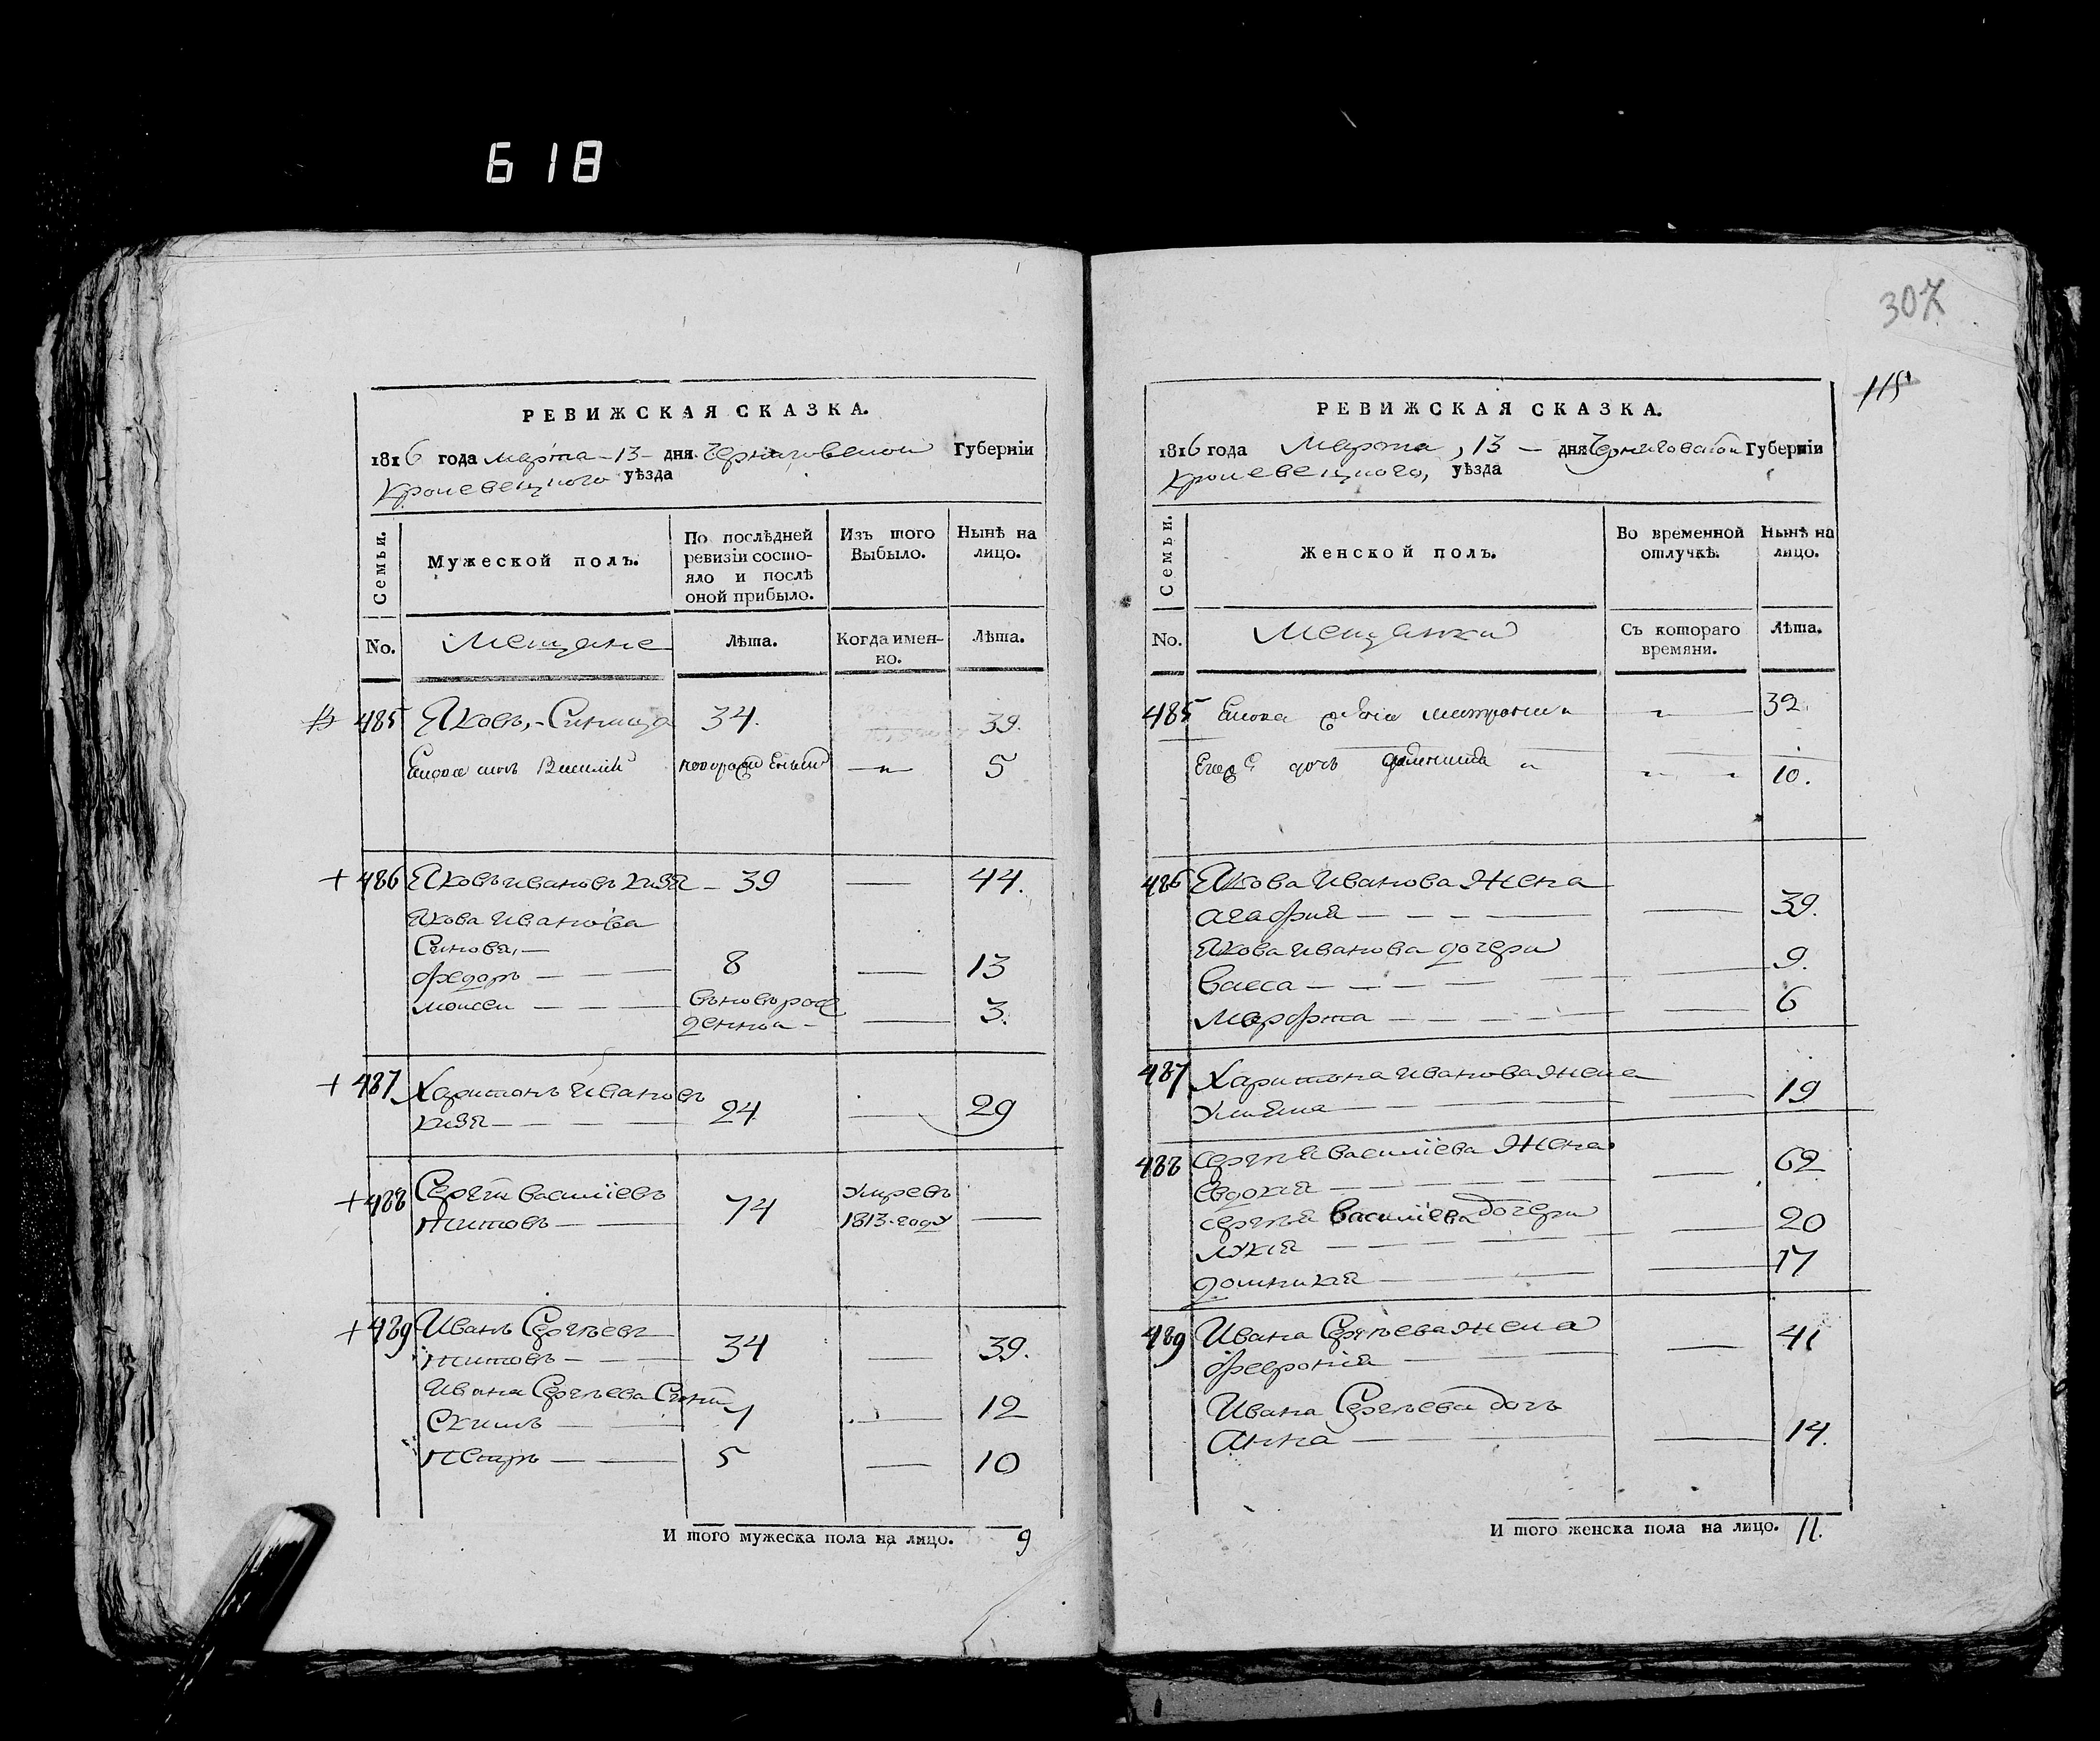 618
307
115
РЕВИЖСКАЯ СКАЗКА.
1816 года марта - 13 - дня Черниговской Губерніи
Кролевецкого уѣзда
Семьи. Мужеской полъ. По послѣдней ревизіи состояло и послѣ оной прибыло. Изъ того Выбыло. Нынѣ на лицо.
No. Мещане Лѣта. Когда именно. Лѣта.
485 Яковъ, - Синица 34. 39.
Василій 5
+ 486 Яковъ Ивановъ Кизя - 39 — 44.
Якова Иванова
Синовя, -
Федоръ - 8 — 13
Моисеи - вьновьрож
денной - — 3.
+ 487 Харитонъ Ивановъ
Кизя - 24 — 29
+ 488 Сергѣй Василіевъ умре въ
Титовъ - 74 1813-году —
+ 489 Иванъ Сергѣевъ
Титовъ - 34 — 39.
Ивана Сергѣева Сыни
7 — 12
Петръ - 5 — 10
И того мужеска пола на лицо. 9
РЕВИЖСКАЯ СКАЗКА.
1816 года Марта, 13 - дня Черниговской Губерніи
Кролевецкого, уѣзда
Семьи. Женской полъ. Во временной отлучкѣ. Нынѣ на лицо.
No. Мещанки Съ котораго времяни. Лѣта.
485 жена 39.
дочь 10.
486 Якова Иванова Жена
Агафия - — 39.
Якова Иванова дочери
Васса - — 9.
Марфта - — 6
487 Харитона Иванова жена
Улияна - — 19
488 Сергѣя Василіева Жена
Евдокия - — 62
Сергѣя Василіева дочери
Лукія - — 20
Домникия - — 17
489 Ивана Сергѣева жена
Феврониа - — 41
Ивана Сергѣева дочь
Анна - — 14.
И того женска пола на лицо. 11.